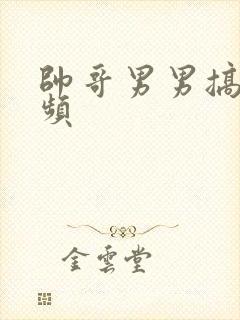 帥哥男男搞
頻
金雲堂